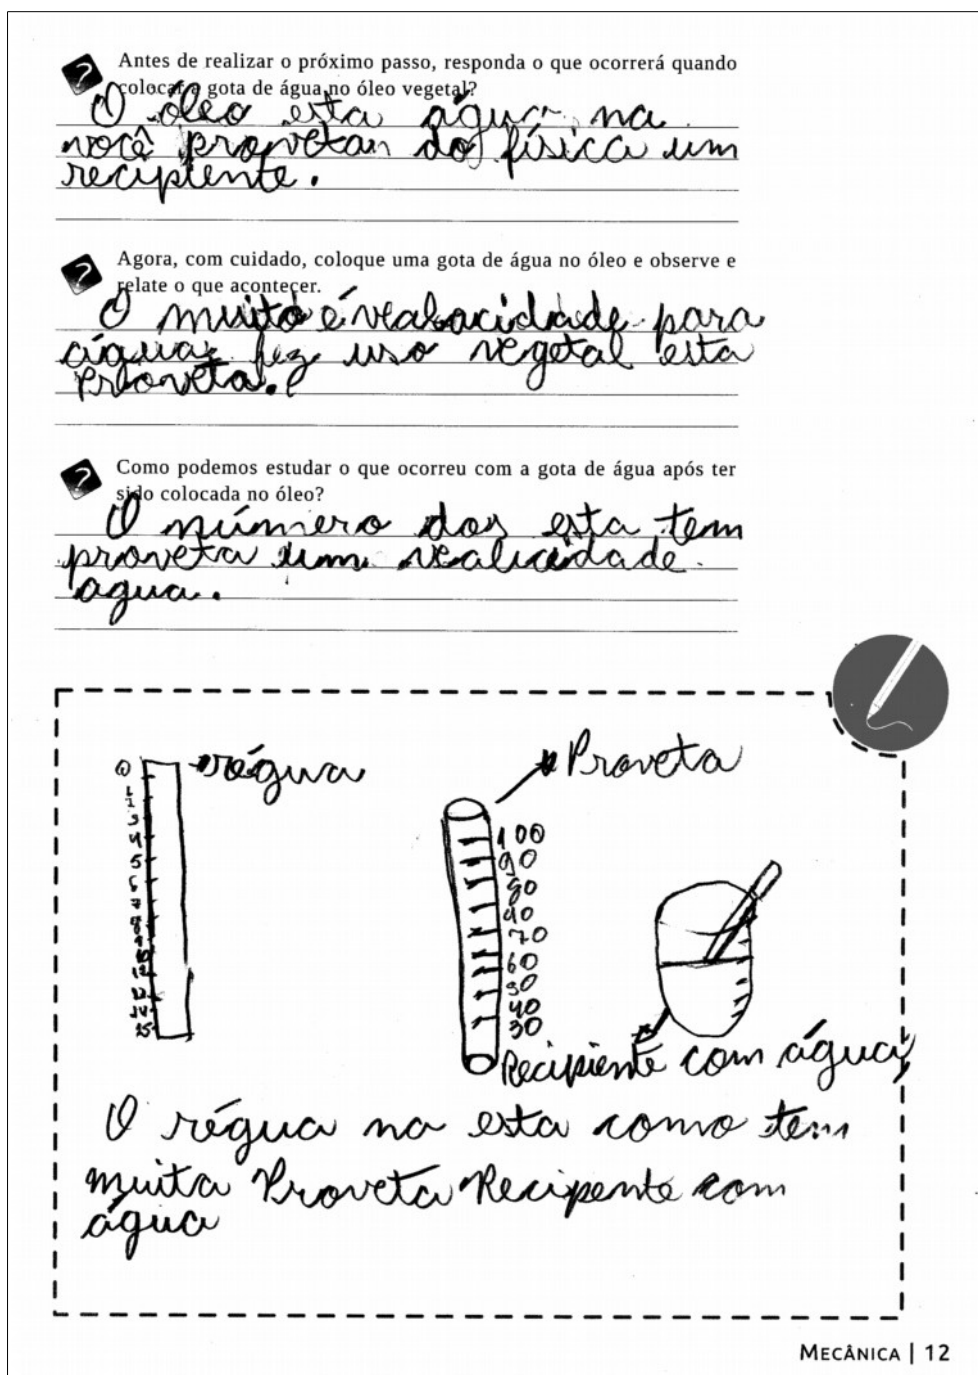 Antes de realizar o próximo passo, responda o que ocorrerá quando
colocar a gota de água no óleo vegetal?
O óleo esta água na
você provetan do física um
recipiente.
Agora, com cuidado, coloque uma gota de água no óleo e observe e
relate o que acontecer.
O muito é vealocidade para
água fez uso vegetal esta
Proveta.
Como podemos estudar o que ocorreu com a gota de água após ter
sido colocada no óleo?
O número dos esta tem
proveta um
água.
régua
Proveta
0
1
2
3
4
5
6
7
8
9
10
12
14
15
100
90
80
70
60
50
40
30
Recipiente com água
O régua na esta como tem
muita Proveta Recipente com
água
MECÂNICA | 12